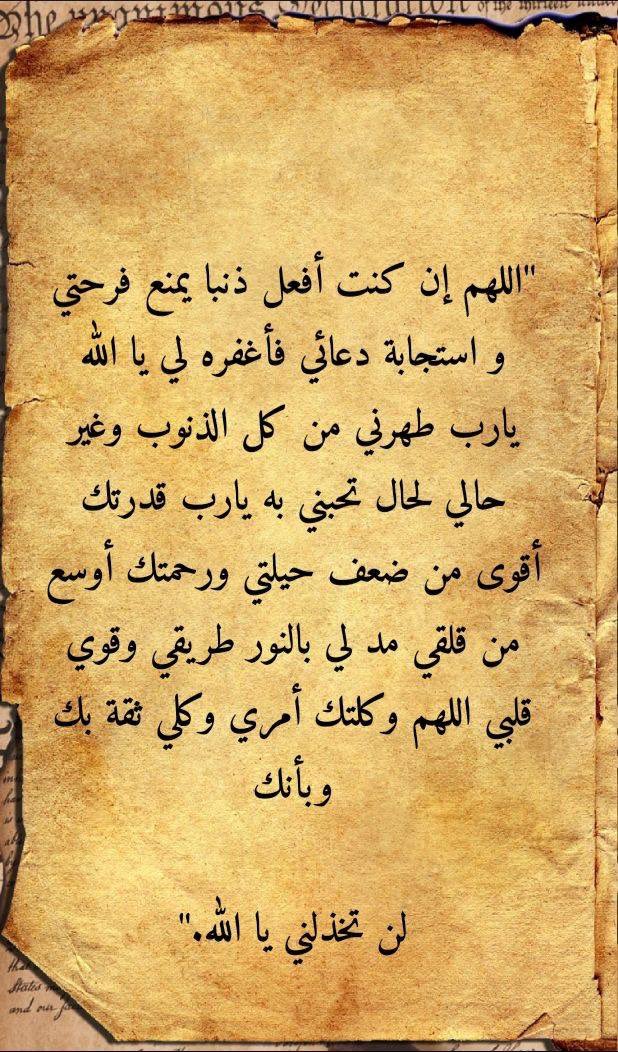 The unanimous Declaration of the thirteen united
"اللهم إن كنت أفعل ذنبا يمنع فرحتي
و استجابة دعائي فأغفره لي يا الله
يارب طهرني من كل الذنوب وغير
حالي لحال تحبني به يارب قدرتك
أقوى من ضعف حيلتي ورحمتك أوسع
من قلقي مد لي بالنور طريقي وقوي
قلبي اللهم وكلتك أمري وكلي ثقة بك
وبأنك
لن تخذلني يا الله."
States
and our